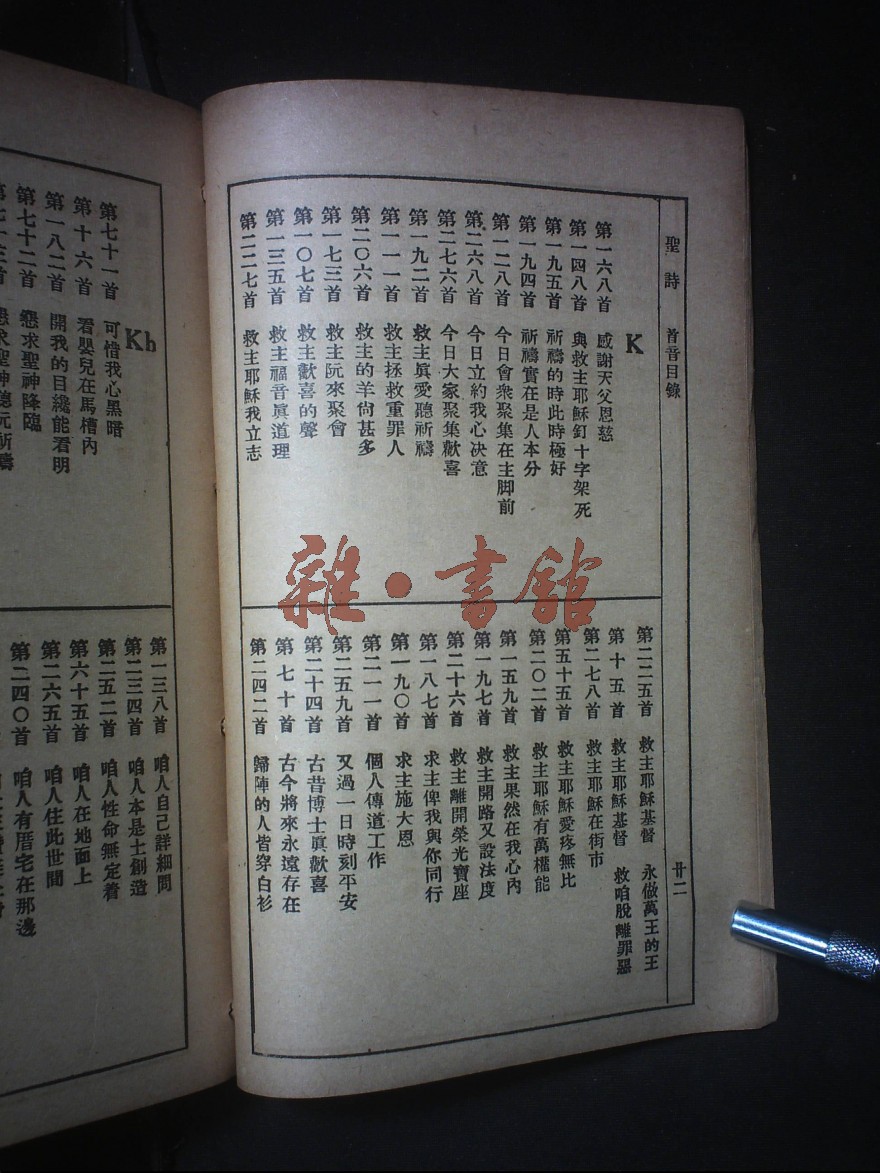 聖詩 首音目錄
K
第一六八首 感謝天父恩慈
第一四八首 與救主耶穌釘十字架死
第一九五首 祈禱的時此時極好
第一九四首 祈禱實在是人本分
第一二八首 今日會衆聚集在主脚前
第二六八首 今日立約我心决意
第二七六首 今日大家聚集歡喜
第九二首 救主眞愛聽祈禱
第一一一首 救主拯救重罪人
第二〇六首 救主的羊尙甚多
第一七三首 救主阮來聚會
第一〇七首 救主歡喜的聲
第一三五首 救主福音眞道理
第二二七首 救主耶穌我立志
第二二五首 救主耶穌基督 永做萬王的王
第十五首 救主耶穌基督 救咱脫離罪惡
第二七八首 救主耶穌在街市
第五十五首 救主耶穌愛疼無比
第二〇二首 救主耶穌有萬權能
第一五九首 救主果然在我心內
第一九七首 救主開路又設法度
第二十六首 救主離開榮光寶座
第一八七首 求主俾我與你同行
第一九〇首 求主施大恩
第二一一首 個人傳道工作
第二五九首 又過一日時刻平安
第二十四首 古昔博士眞歡喜
第七十首 古今將來永遠存在
第二四二首 歸陣的人皆穿白衫
廿二
Kb
第七十一首 可惜我心黑暗
第十六首 看嬰兒在馬槽內
第一八二首 開我的目纔能看明
第七十二首 懇求聖神降臨
第一三八首 咱人自己詳細問
第二三四首 咱人本是士創造
第二五二首 咱人性命無定着
第六十五首 咱人在地面上
第二六五首 咱人住此世間
第二四〇首 咱人有厝宅在那邊
雜·書館